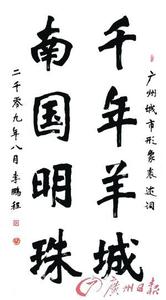 广州城市形象表述词
千年羊城
南国明珠
二千零九年八月李鹏程
广州日报